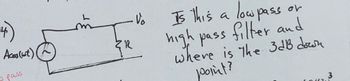 4)
L
Vo
R
Acos(ωt)
Is this a low pass or
high pass filter and
where is the 3dB down
point?
pass
3